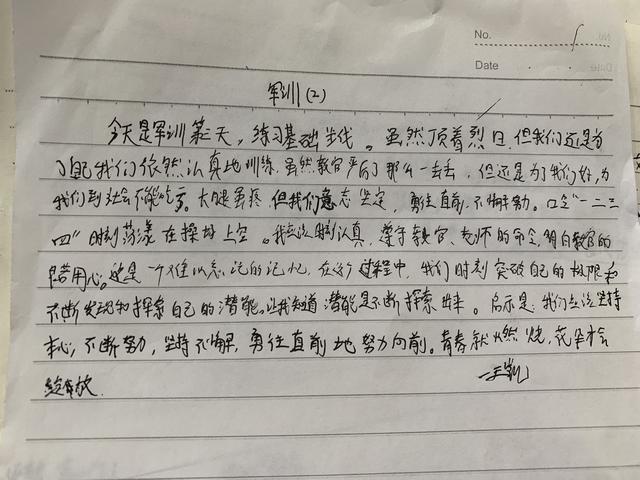 No.
Date
军训(2)
今天是军训第二天，练习基础步伐。虽然顶着烈日，但我们还是为
了自己我们依然认真地训练，虽然教官严厉了那么一丢丢，但还是为了我们好，为
我们到社会不能吃亏。大腿虽疼，但我们意志坚定，勇往直前，不懈努力。口令“一二三
四”时刻荡漾在操场上空。我应该时刻认真，遵守教官、老师的命令，明白教官的
良苦用心。这是一个难以忘记的记忆，在这个过程中，我们时刻突破自己的极限和
不断发现和探索自己的潜能。让我知道潜能是不断探索出来。启示是：我们应该坚持
本心，不断努力，坚持不懈，勇往直前地努力向前。青春就燃烧，花朵才会
绽放.